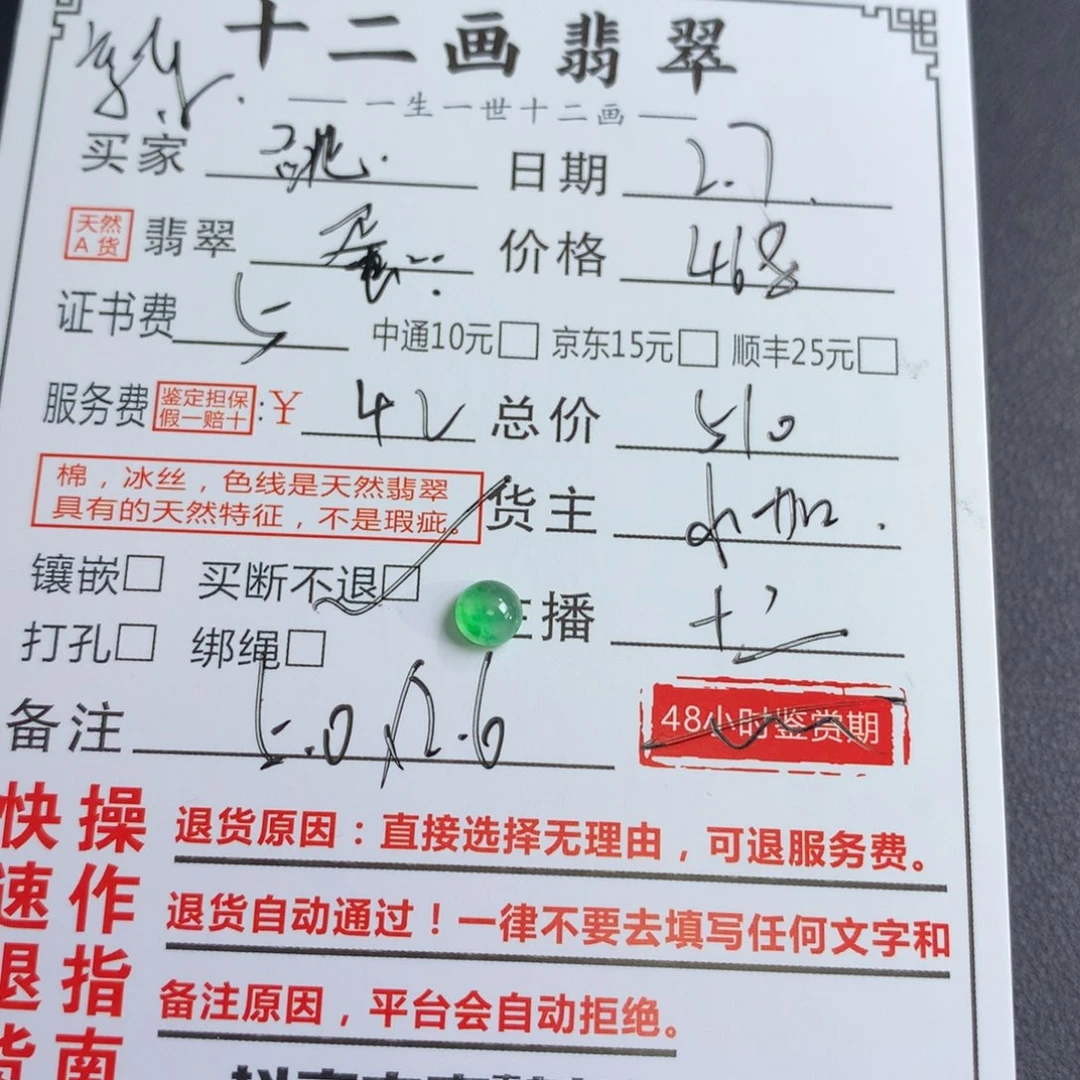 十二画翡翠
一生一世十二画
买家 日期 2.7
天然A货 翡翠 蛋 价格 468
证书费 5 中通10元□ 京东15元□ 顺丰25元□
服务费 鉴定担保假一赔十:¥ 42 总价 510
棉，冰丝，色线是天然翡翠
具有的天然特征，不是瑕疵。 货主
镶嵌□ 买断不退□
打孔□ 绑绳□ 播 十二
备注 5.0/2.6
48小时鉴赏期
快速退货 操作指南
退货原因：直接选择无理由，可退服务费。
退货自动通过！一律不要去填写任何文字和
备注原因，平台会自动拒绝。